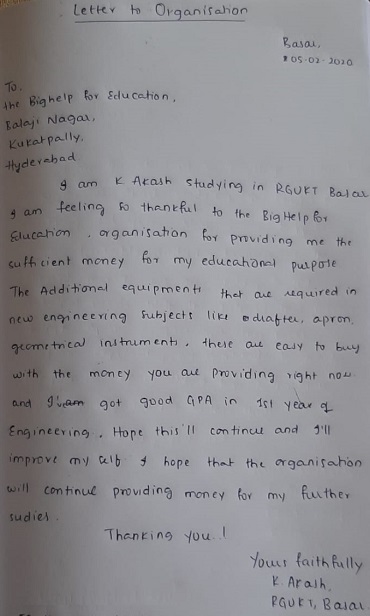 Letter to Organisation
Basar,
05.02.2020
To,
the Bighelp for Education,
Balaji Nagar,
Kukatpally,
Hyderabad
I am K Akash studying in RGUKT Basar
I am feeling so thankful to the Big Help for
Education, organisation for providing me the
sufficient money for my educational purpose
The Additional equipments that are required in
new engineering subjects like drafter, apron,
geometrical instruments, these are easy to buy
with the money you are providing right now
and I got good GPA in 1st year of
Engineering. Hope this'll continue and I'll
improve my self I hope that the organisation
will continue providing money for my further
sudies.
Thanking you..!
Yours faithfully
K. Akash,
RGUKT, Basar